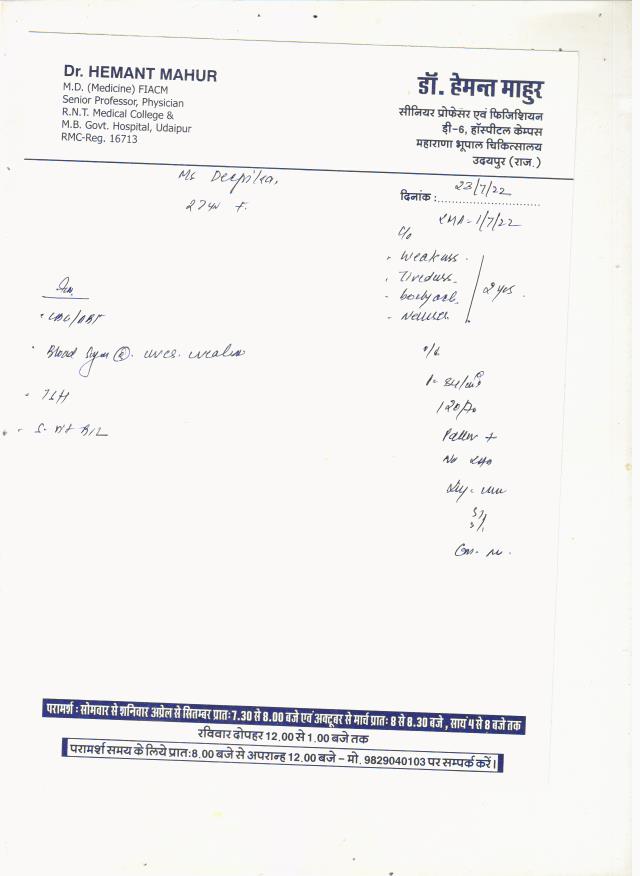 Dr. HEMANT MAHUR
M.D. (Medicine) FIACM
Senior Professor, Physician
R.N.T. Medical College &
M.B. Govt. Hospital, Udaipur
RMC-Reg. 16713
डॉ. हेमन्त माहुर
सीनियर प्रोफेसर एवं फिजिशियन
डी-6, हॉस्पीटल केम्पस
महाराणा भूपाल चिकित्सालय
उदयपुर (राज.)
Ms Deepika,
27 F.
दिनांक : 23/7/22
LMP-1/7/22
C/o
- Weakness
- Tiredness
- bodyach
- Nausea
2 yrs.
- CBC/
- Blood Sugar
- TSH
- S. Vit B12
O/E
120/70
Pallor +
No
परामर्श : सोमवार से शनिवार अप्रेल से सितम्बर प्रातः 7.30 से 8.00 बजे एवं अक्टूबर से मार्च प्रातः 8 से 8.30 बजे , सायं 4 से 8 बजे तक
रविवार दोपहर 12.00 से 1.00 बजे तक
परामर्श समय के लिये प्रातः 8.00 बजे से अपरान्ह 12.00 बजे – मो. 9829040103 पर सम्पर्क करें।